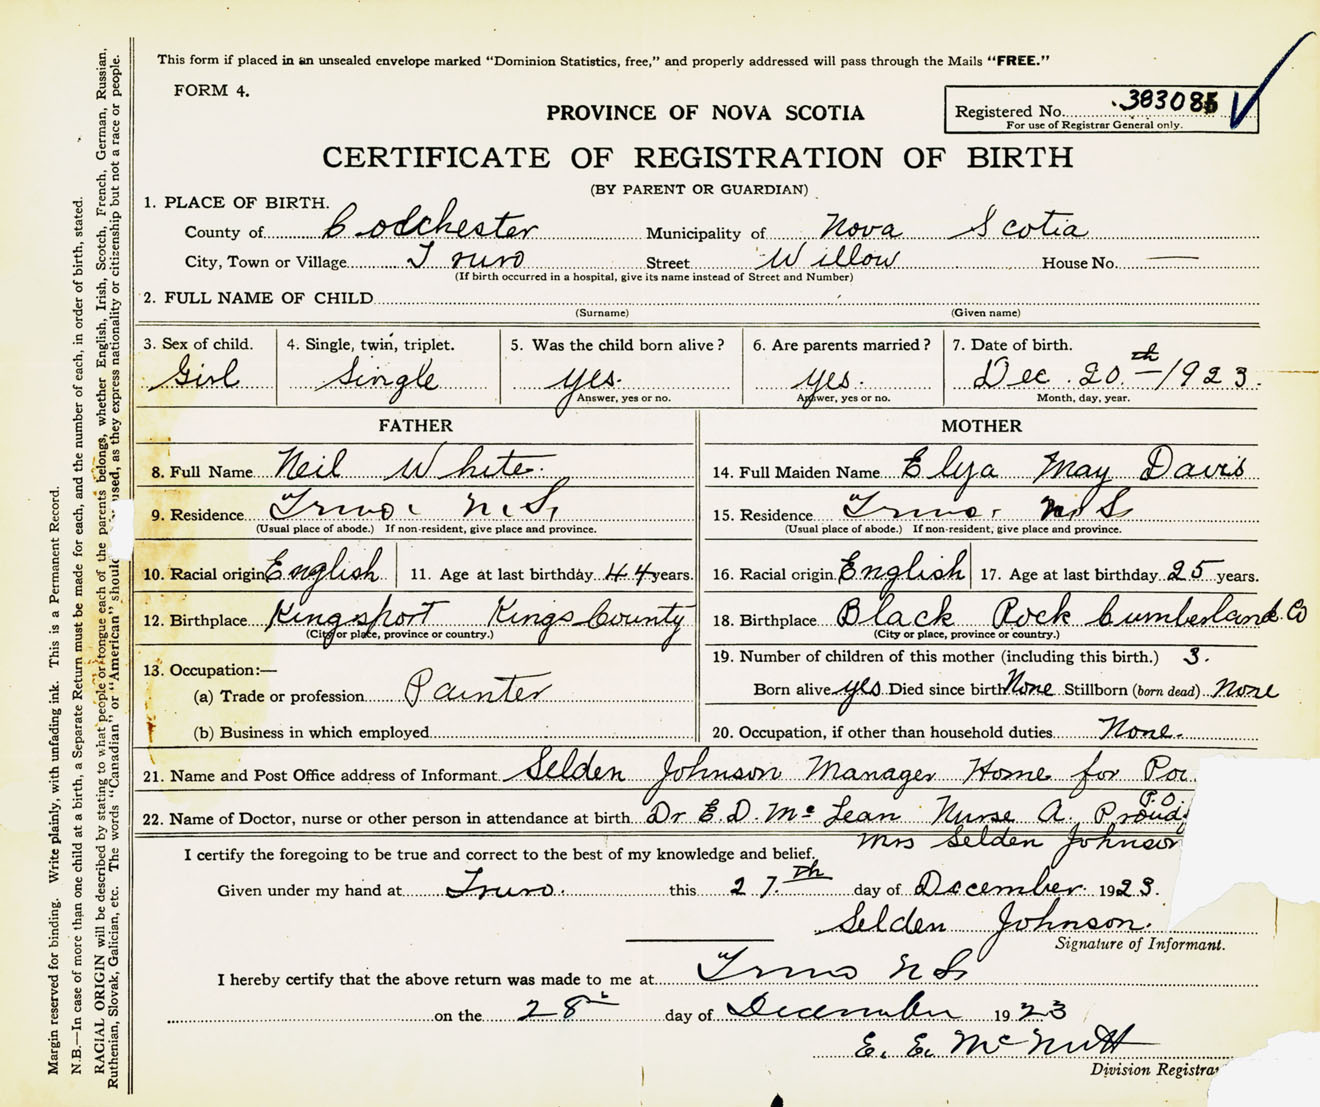 This form if placed in an unsealed envelope marked "Dominion Statistics, free," and properly addressed will pass through the Mails "FREE."
FORM 4.
PROVINCE OF NOVA SCOTIA
Registered No. 383085
For use of Registrar General only.
CERTIFICATE OF REGISTRATION OF BIRTH
(BY PARENT OR GUARDIAN)
1. PLACE OF BIRTH.
County of Colchester Municipality of Nova Scotia
City, Town or Village Truro Street Willow House No. —
(If birth occurred in a hospital, give its name instead of Street and Number)
2. FULL NAME OF CHILD
(Surname) (Given name)
3. Sex of child. 4. Single, twin, triplet. 5. Was the child born alive? 6. Are parents married? 7. Date of birth.
Girl Single yes. yes. Dec. 20th 1923.
Answer, yes or no. Answer, yes or no. Month, day, year.
FATHER MOTHER
8. Full Name Neil White. 14. Full Maiden Name Elya May Davis
9. Residence Truro, N.S. 15. Residence Truro, N.S.
(Usual place of abode.) If non-resident, give place and province. (Usual place of abode.) If non-resident, give place and province.
10. Racial origin English 11. Age at last birthday 44 years. 16. Racial origin English 17. Age at last birthday 25 years.
12. Birthplace Kingsport Kings County 18. Birthplace Black Rock Cumberland Co
(City or place, province or country.) (City or place, province or country.)
13. Occupation:— 19. Number of children of this mother (including this birth.) 3.
(a) Trade or profession Painter Born alive yes Died since birth None Stillborn (born dead) none
(b) Business in which employed 20. Occupation, if other than household duties None.
21. Name and Post Office address of Informant Selden Johnson Manager Home for
P.O.
22. Name of Doctor, nurse or other person in attendance at birth Dr E. D. McLean Nurse A.
Mrs Selden Johnson
I certify the foregoing to be true and correct to the best of my knowledge and belief.
Given under my hand at Truro. this 27th day of December 1923.
Selden Johnson.
Signature of Informant.
I hereby certify that the above return was made to me at Truro N.S.
on the 28th day of December 1923
E. E. McNutt
Division Registrar
Margin reserved for binding. Write plainly, with unfading ink. This is a Permanent Record.
N.B.—In case of more than one child at a birth, a Separate Return must be made for each, and the number of each, in order of birth, stated.
RACIAL ORIGIN will be described by stating to what people or tongue each of the parents belongs, whether English, Irish, Scotch, French, German, Russian,
Ruthenian, Slovak, Galician, etc. The words "Canadian" or "American" should used, as they express nationality or citizenship but not a race or people.